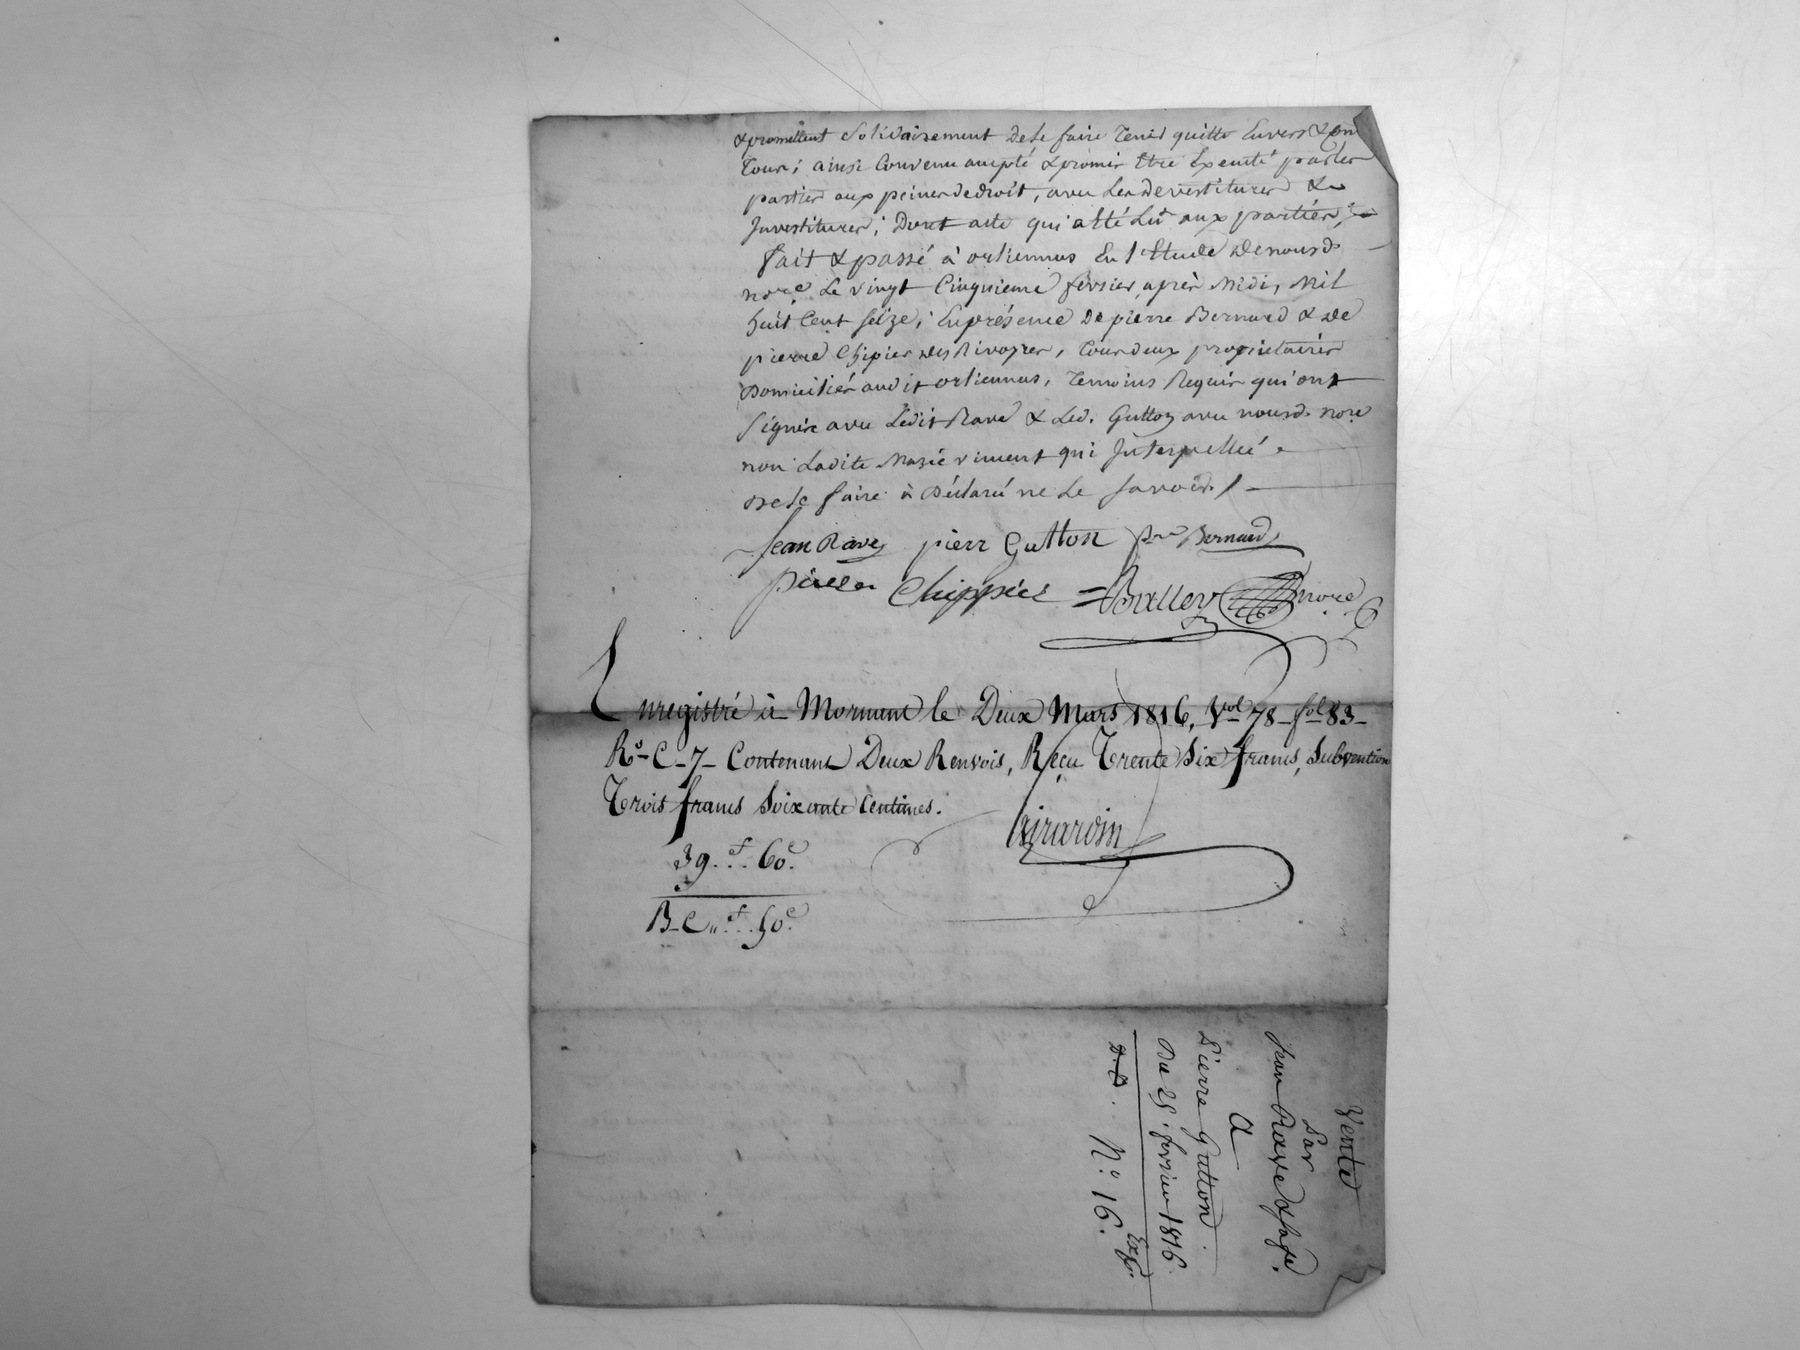 & promettent solidairement de le faire tenir quitte Envers & en
Tour; ainsi Convenu accepté & promis Etre Executé par les
parties aux peines de droit, avec les devestitures &
Investitures; Dont acte qui a Eté Lu aux parties,
fait & passé à orliennas En l'Etude de nousd.
nore. Le vingt Cinquieme février, après Midi, Mil
huit Cent seize; En présence De pierre Bernard & de
pierre Chipier des Rivoires, tous deux proprietaires
Domiciliés audit orliennas, Temoins Requis qui ont
signés avec Ledit Rave & Led. Gutton avec nousd. nore
non Ladite Marie viment qui Interpellée
De le faire à Déclaré ne Le savoir. /
Jean Rave pierr Gutton pre Bernard
pierre Chippier = Balley nore
Enregistré à Mornant le Deux Mars 1816, Vol 78 - fol 83 -
Ro - C - 7 - Contenant Deux Renvois, Reçu Trente Six francs, Subvention
Trois francs Soixante Centimes.
Girardin
39.f.. 60c.
B - C ,, f.. 50c.
Vente
Par
Jean Rave & sa fe.
A
Pierre Gutton.
Du 25. fevrier 1816
Exp.
N.o 16.